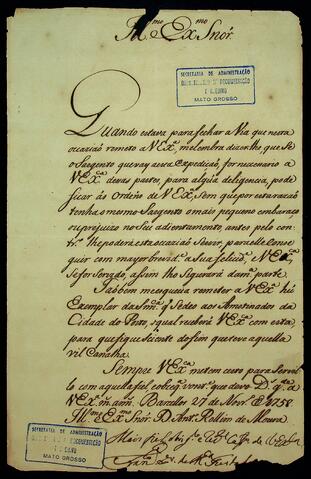 Ill.mo e Ex.mo Snór.
SECRETARIA DE ADMINISTRAÇÃO
E DOCUMENTAÇÃO
MATO GROSSO
Quando estava para fechar a Via que nesta
ocaziaõ remeto a V Ex.ª me lembra dizerlhe, que se o
Sargento que vay a essa Expediçaõ, for necessario a
V Ex.ª dessas partes, para algũa deligencia, pode
ficar ás Ordens de V Ex.ª, sem que por esta razaõ
tenha o mesmo Sargento o mais pequeno embaraço
ou prejuizo no seu adientamento, antes pelo con-
tr.º lhe poderá esta ocaziaõ servir, para nella conse
guir com mayor brevid.e a sua felicid.e V Ex.ª
se for servido, assim lho segurará da m.ª parte.
Tambem me segue remeter a V Ex.ª hũ
Exemplar da Sen.ça que se deo aos Amotinados da
Cidade do Porto, o qual receberá V Ex.ª com esta,
para que fique sciente do fim que teve aquella
vil Canalha.
Sempre V Ex.ª me tem certo para servi
lo com aquella fiel obseq. vont.e que devo. D.s g.de a
V Ex.ª m. ann.s Barcellos 27 de Nov.º de 1758.
Ill.mo e Ex.mo Snór. D. Ant.º Rollim de Moura
SECRETARIA DE ADMINISTRAÇÃO
E DOCUMENTAÇÃO
MATO GROSSO